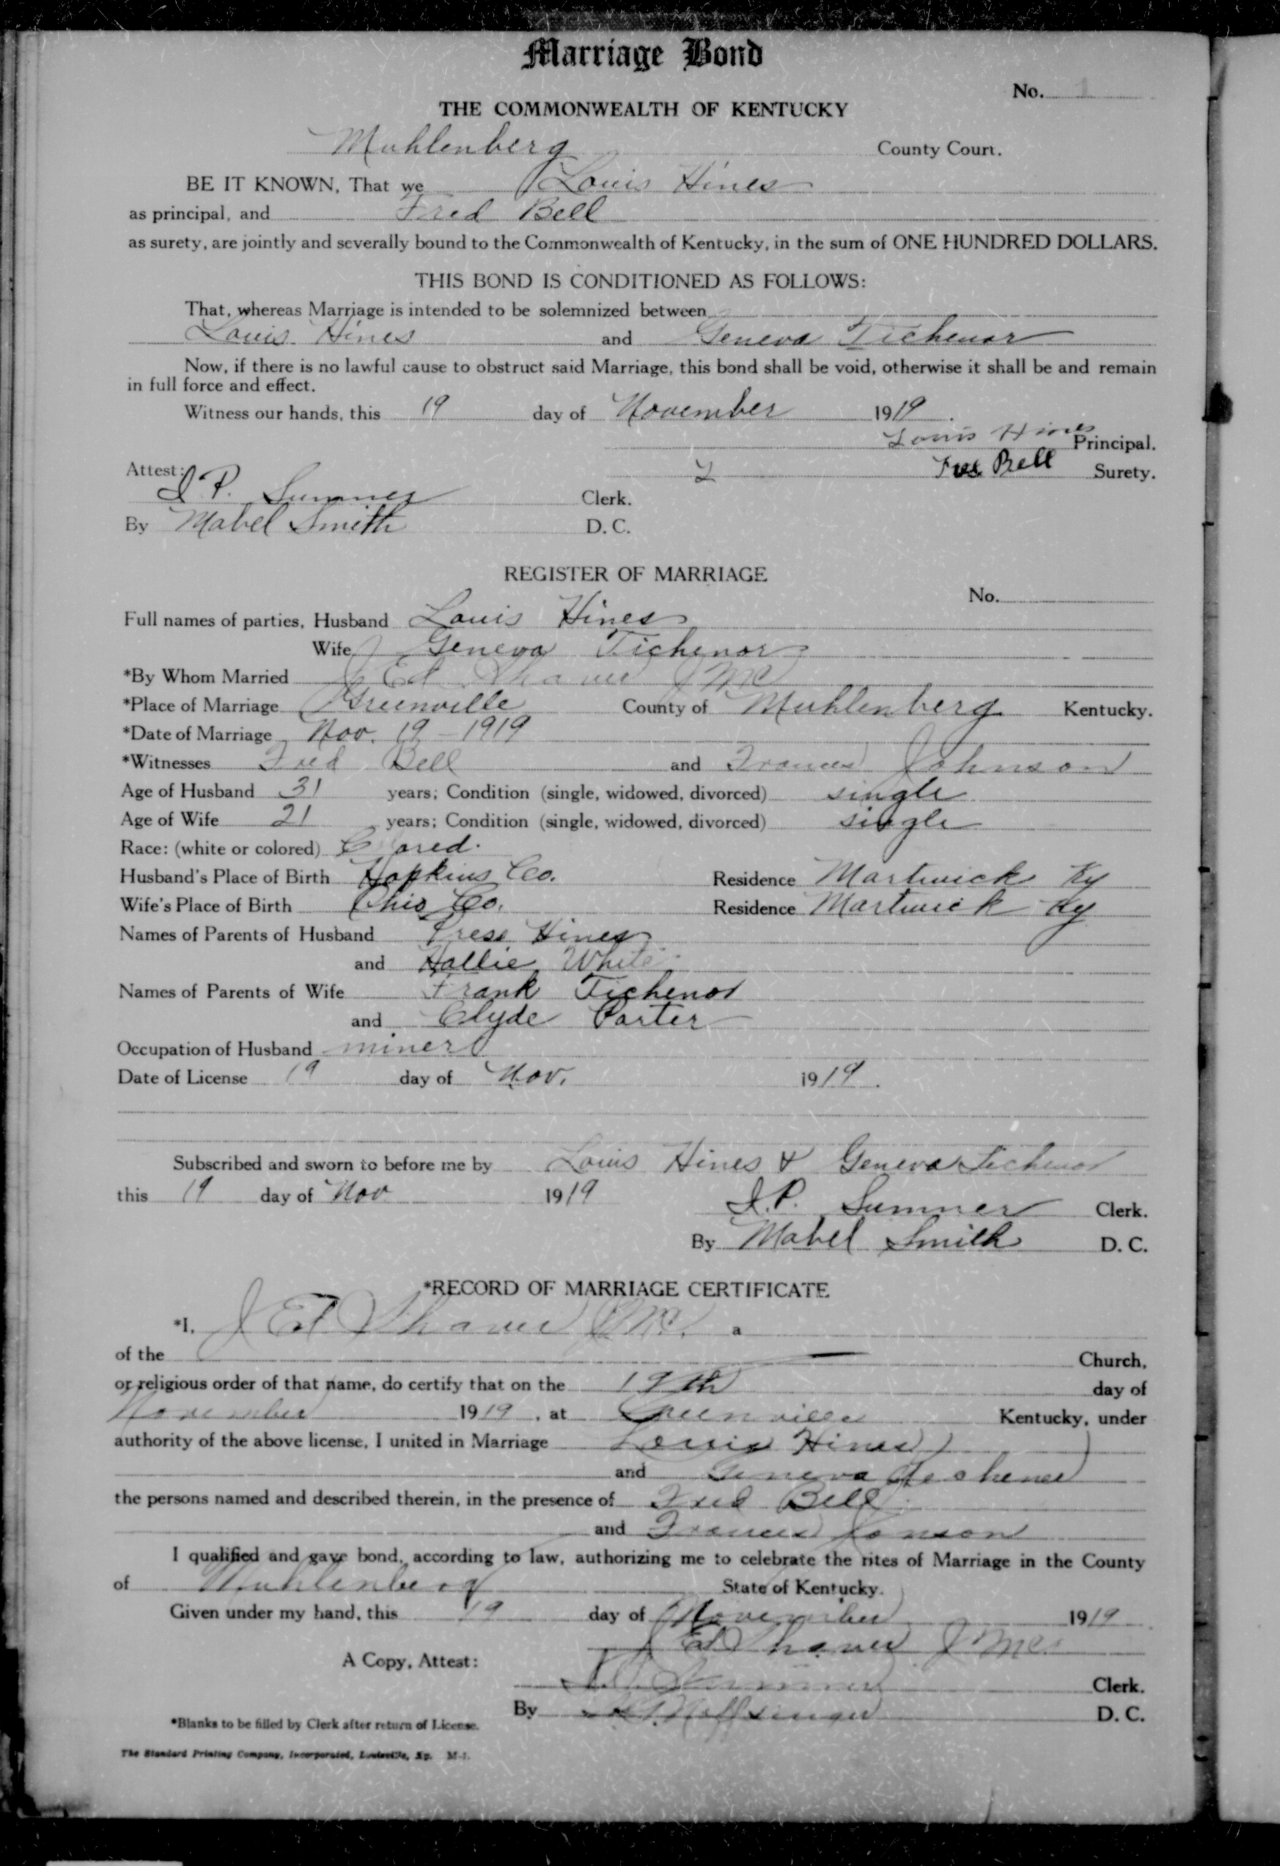 Marriage Bond
No. 1
THE COMMONWEALTH OF KENTUCKY
Muhlenberg County Court.
BE IT KNOWN, That we Louis Hines
as principal, and Fred Bell
as surety, are jointly and severally bound to the Commonwealth of Kentucky, in the sum of ONE HUNDRED DOLLARS.
THIS BOND IS CONDITIONED AS FOLLOWS:
That, whereas Marriage is intended to be solemnized between
Louis Hines and Geneva Tichenor
Now, if there is no lawful cause to obstruct said Marriage, this bond shall be void, otherwise it shall be and remain
in full force and effect.
Witness our hands, this 19 day of November 1919.
Louis Hines Principal.
Fred Bell Surety.
Attest:
I. P. Sumner Clerk.
By Mabel Smith D. C.
REGISTER OF MARRIAGE
No.
Full names of parties, Husband Louis Hines
Wife Geneva Tichenor
*By Whom Married J Ed Shaver JMC
*Place of Marriage Greenville County of Muhlenberg Kentucky.
*Date of Marriage Nov. 19 - 1919
*Witnesses Fred Bell and Frances Johnson
Age of Husband 31 years; Condition (single, widowed, divorced) single
Age of Wife 21 years; Condition (single, widowed, divorced) single
Race: (white or colored) Colored.
Husband's Place of Birth Hopkins Co. Residence Martwick Ky
Wife's Place of Birth Ohio Co. Residence Martwick Ky
Names of Parents of Husband Prese Hines
and Hallie White
Names of Parents of Wife Frank Tichenor
and Clyde Porter
Occupation of Husband miner
Date of License 19 day of Nov. 1919.
Subscribed and sworn to before me by Louis Hines & Geneva Tichenor
this 19 day of Nov 1919
I. P. Sumner Clerk.
By Mabel Smith D. C.
*RECORD OF MARRIAGE CERTIFICATE
*I, J Ed Shaver JMC. a
of the Church,
or religious order of that name, do certify that on the 19th day of
November 1919, at Greenville Kentucky, under
authority of the above license, I united in Marriage Louis Hines
and Geneva Tichenor
the persons named and described therein, in the presence of Fred Bell
and Frances Jonson
I qualified and gave bond, according to law, authorizing me to celebrate the rites of Marriage in the County
of Muhlenberg State of Kentucky.
Given under my hand, this 19 day of November 1919
J Ed Shaver JMC
A Copy, Attest:
Sumner Clerk.
By Noffsinger D. C.
*Blanks to be filled by Clerk after return of License.
The Standard Printing Company, Incorporated, Louisville, Ky. M-1.